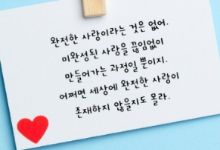 완전한 사랑이라는 것은 없어.
미완성된 사랑을 끊임없이
만들어가는 과정일 뿐이지.
어쩌면 세상에 완전한 사랑이
존재하지 않을지도 몰라.